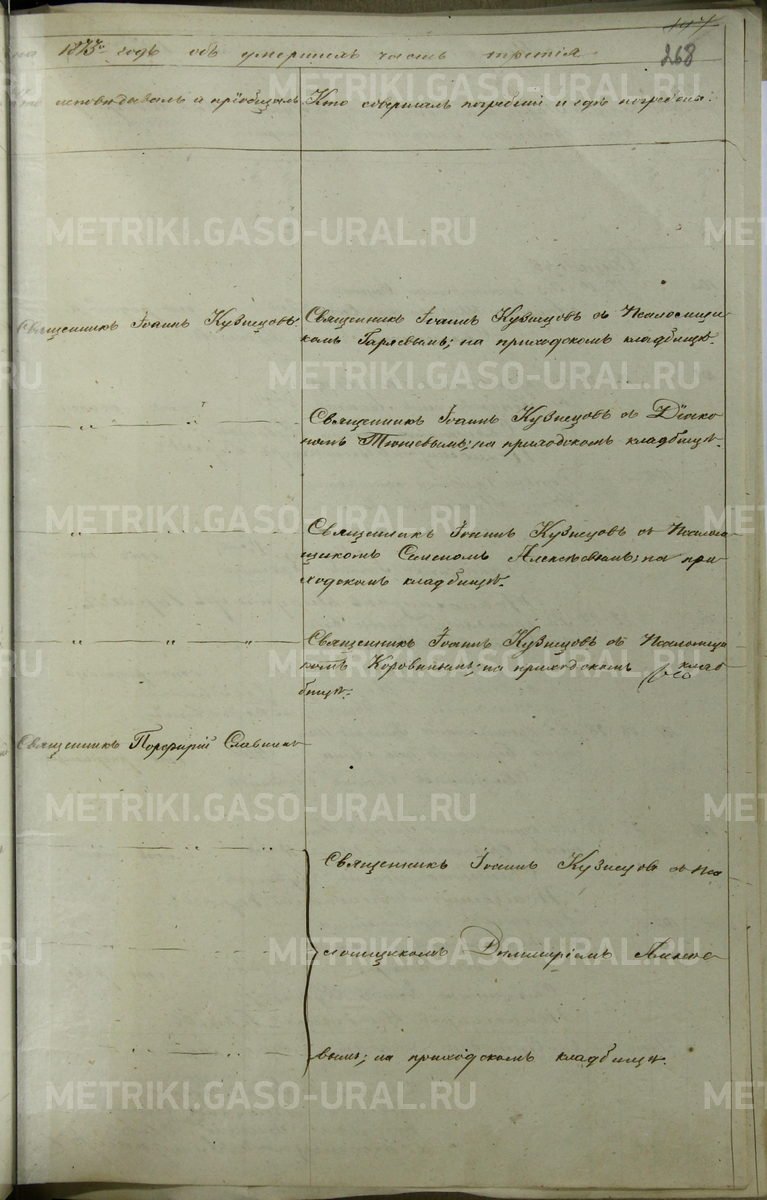 268
на 1875го годъ объ умершихъ часть третія
исповѣдывалъ и пріобщалъ
Кто совершалъ погребеніе и гдѣ погребены:
Священникъ Іоаннъ Кузнецовъ.
Священникъ Іоаннъ Кузнецовъ съ Псаломщи-
комъ Гаряевымъ; на приходскомъ кладбищѣ.
„ „
Священникъ Іоаннъ Кузнецовъ съ Діако-
номъ на приходскомъ кладбищѣ.
„
Священникъ Іоаннъ Кузнецовъ съ Псалом-
щикомъ Семеномъ Алексѣевымъ; на при-
ходскомъ кладбищѣ.
„ „ „
Священникъ Іоаннъ Кузнецовъ съ Псаломщи-
комъ Коровинымъ; на приходскомъ клад-
бищѣ.
Священникъ Порфирій Славнинъ
„ „
Священникъ Іоаннъ Кузнецовъ съ Пса-
ломщикомъ Димитріемъ
вымъ; на приходскомъ кладбищѣ.
METRIKI.GASO-URAL.RU